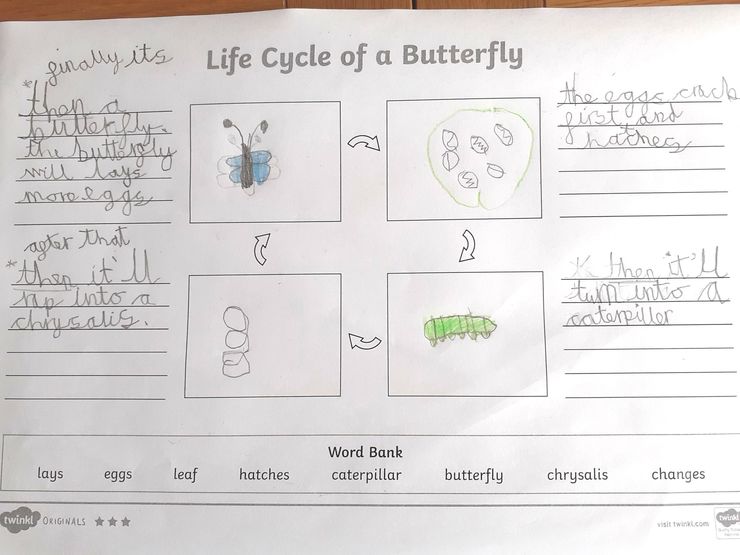 Life Cycle of a Butterfly
finally its
*then a
butterfly.
the butterfly
will lays
more eggs
the eggs crack
first and
hatches
after that
*then it'll
into a
chrysalis.
* then it'll
turn into a
caterpiller
Word Bank
lays eggs leaf hatches caterpillar butterfly chrysalis changes
twinkl ORIGINALS
visit twinkl.com
twinkl